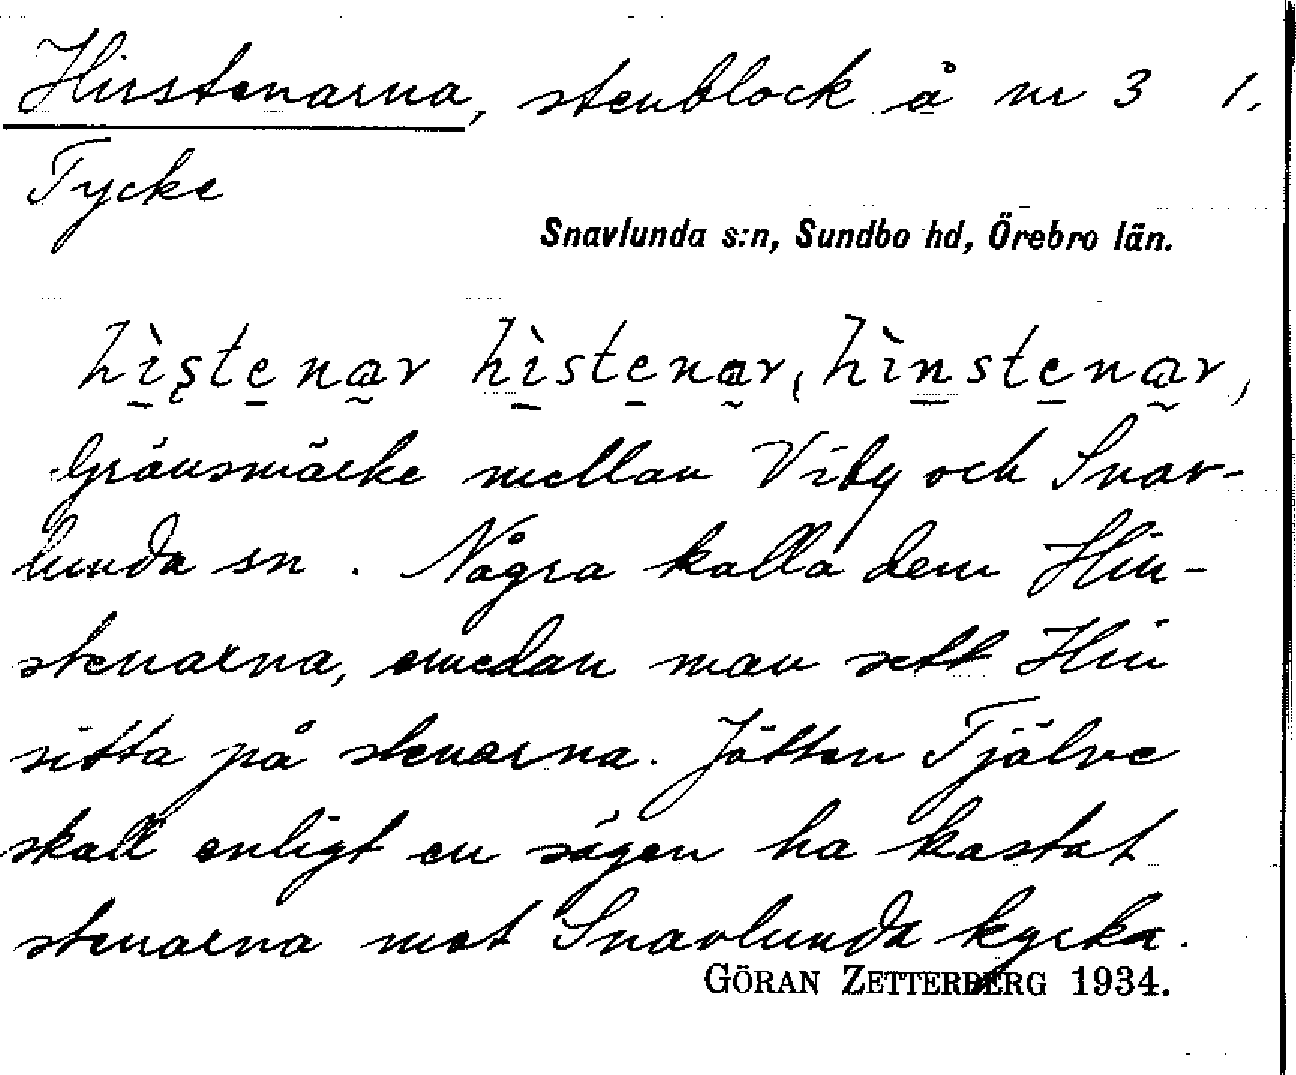 Hirstenarna, stenblock å nr 3 1.
Tycke
Snavlunda s:n, Sundbo hd, Örebro län.
hìs̨tenar hìstenar, hìnstenar,
Gränsmärke mellan Viby och Snav-
lunda sn. Några kalla dem Hin-
stenarna, emedan man sett Hin
sitta på stenarna. Jätten Tjälve
skall enligt en sägen ha kastat
stenarna mot Snavlunda kyrka.
GÖRAN ZETTERBERG 1934.